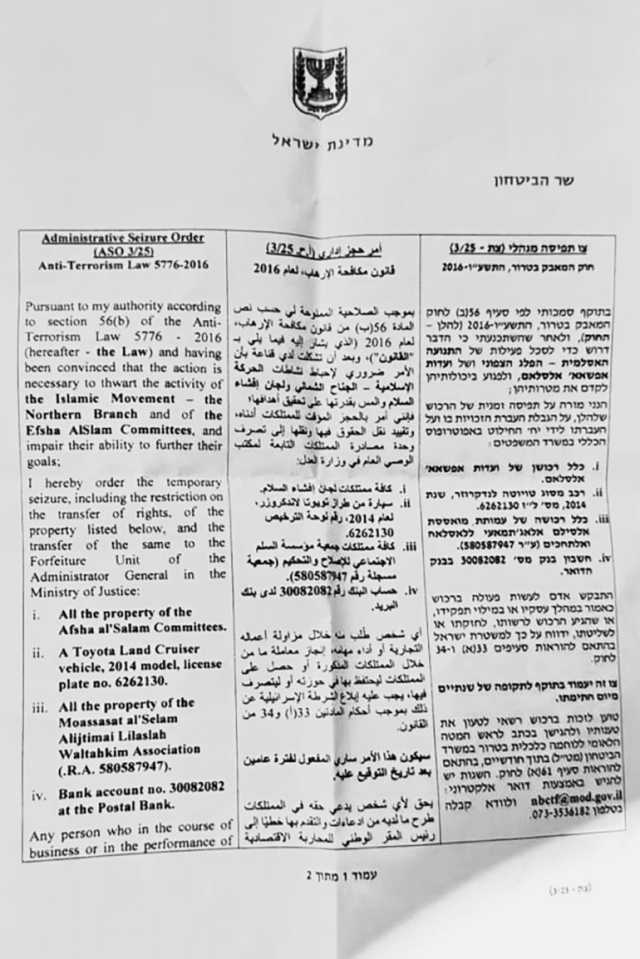 מדינת ישראל
שר הביטחון
Administrative Seizure Order
(ASO 3/25)
Anti-Terrorism Law 5776-2016
Pursuant to my authority according
to section 56(b) of the Anti-
Terrorism Law 5776 - 2016
(hereafter - the Law) and having
been convinced that the action is
necessary to thwart the activity of
the Islamic Movement – the
Northern Branch and of the
Efsha AlSlam Committees, and
impair their ability to further their
goals;
I hereby order the temporary
seizure, including the restriction on
the transfer of rights, of the
property listed below, and the
transfer of the same to the
Forfeiture Unit of the
Administrator General in the
Ministry of Justice:
i. All the property of the
Afsha al'Salam Committees.
ii. A Toyota Land Cruiser
vehicle, 2014 model, license
plate no. 6262130.
iii. All the property of the
Moassasat al'Selam
Alijtimai Lilaslah
Waltahkim Association
(.R.A. 580587947).
iv. Bank account no. 30082082
at the Postal Bank.
Any person who in the course of
business or in the performance of
أمر حجز إداري (أ.ح. 3/25)
قانون مكافحة الإرهاب، لعام 2016
بموجب الصلاحية الممنوحة لي حسب نص
المادة 56(ب) من قانون مكافحة الإرهاب،
لعام 2016 (الذي يشار إليه فيما يلي بـ
"القانون")، وبعد أن تشكلت لدي قناعة بأن
الأمر ضروري لإحباط نشاطات الحركة
الإسلامية – الجناح الشمالي ولجان إفشاء
السلام والمس بقدرتها على تحقيق أهدافها؛
فإنني أمر بالحجز المؤقت للممتلكات أدناه،
وتقييد نقل الحقوق فيها ونقلها إلى تصرف
وحدة مصادرة الممتلكات التابعة لمكتب
الوصي العام في وزارة العدل:
i. كافة ممتلكات لجان إفشاء السلام.
ii. سيارة من طراز تويوتا لاندكروزر،
لعام 2014، رقم لوحة الترخيص
6262130.
iii. كافة ممتلكات جمعية مؤسسة السلم
الاجتماعي للإصلاح والتحكيم (جمعية
مسجلة رقم 580587947).
iv. حساب البنك رقم 30082082 لدى بنك
البريد.
أي شخص طُلب منه خلال مزاولة أعماله
التجارية أو أداء مهامه، إنجاز معاملة ما من
خلال الممتلكات المذكورة أو حصل على
الممتلكات ليحتفظ بها في حوزته أو ليتصرف
فيها، يجب عليه إبلاغ الشرطة الإسرائيلية عن
ذلك بموجب أحكام المادتين 33(أ) و34 من
القانون.
سيكون هذا الأمر ساري المفعول لفترة عامين
بعد تاريخ التوقيع عليه.
يحق لأي شخص يدعي حقه في الممتلكات
طرح ما لديه من ادعاءات والتقدم بها خطيًا إلى
رئيس المقر الوطني للمحاربة الاقتصادية
צו תפיסה מנהלי (צת - 3/25)
חוק המאבק בטרור, התשע"ו-2016
בתוקף סמכותי לפי סעיף 56(ב) לחוק
המאבק בטרור, התשע"ו-2016 (להלן –
החוק), ולאחר שהשתכנעתי כי הדבר
דרוש כדי לסכל פעילות של התנועה
האסלמית - הפלג הצפוני ושל ועדות
אפשאא' אלסלאם, ולפגוע ביכולותיהן
לקדם את מטרותיהן;
הנני מורה על תפיסה זמנית של הרכוש
שלהלן, על הגבלת העברת הזכויות בו ועל
העברתו לידי יח' החילוט באפוטרופוס
הכללי במשרד המשפטים:
i. כלל רכושן של ועדות אפשאא'
אלסלאם.
ii. רכב מסוג טויוטה לנדקרוזר, שנת
2014, מס' ל"ז 6262130.
iii. כלל רכושה של עמותת מואססת
אלסילם אלאג'תמאעי ללאסלאח
ואלתחכים (ע"ר 580587947).
iv. חשבון בנק מס' 30082082 בבנק
הדואר.
התבקש אדם לעשות פעולה ברכוש
כאמור במהלך עסקיו או במילוי תפקידו,
או שהגיע הרכוש לרשותו, לחזקתו או
לשליטתו, ידווח על כך למשטרת ישראל
בהתאם להוראות סעיפים 33(א) ו-34
לחוק.
צו זה יעמוד בתוקף לתקופה של שנתיים
מיום חתימתו.
טוען לזכות ברכוש רשאי לטעון את
טענותיו ולהגישן בכתב לראש המטה
הלאומי ללוחמה כלכלית בטרור במשרד
הביטחון (מטל"ל) בתוך חודשיים, בהתאם
להוראות סעיף 61(א) לחוק. השגות יש
להגיש באמצעות דואר אלקטרוני:
nbctf@mod.gov.il ולוודא קבלה
בטלפון 073-3536182.
עמוד 1 מתוך 2
(צת - 3/25)